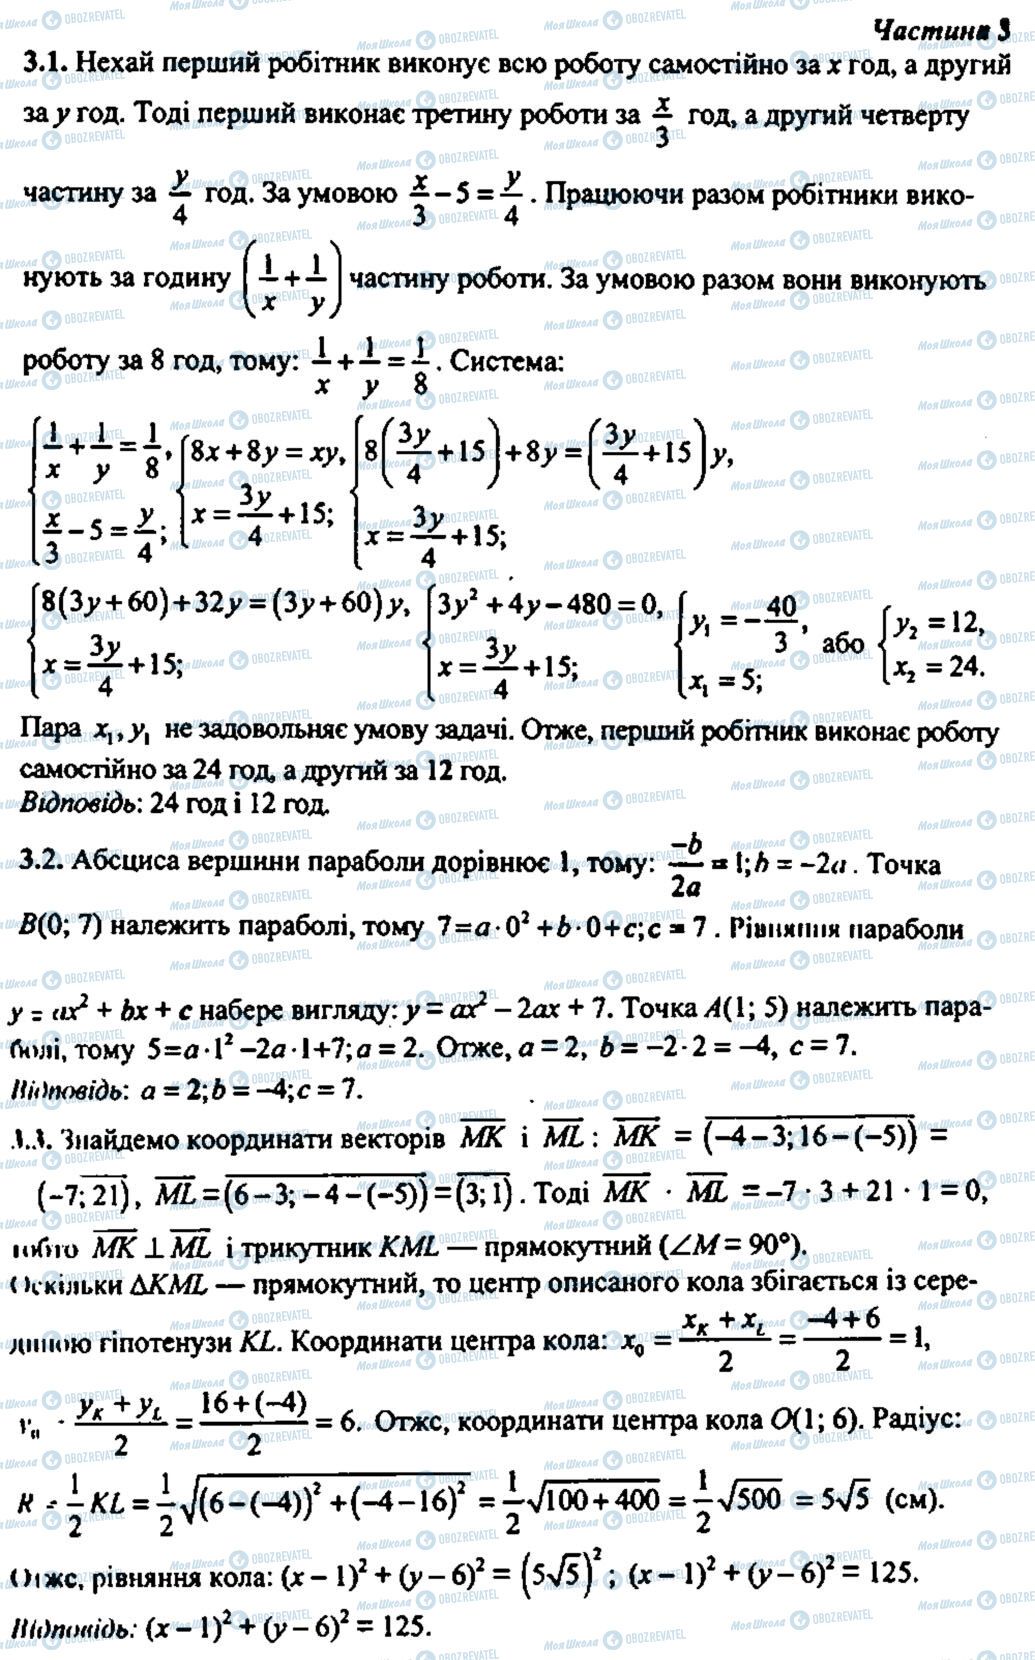 Частина 3
3.1. Нехай перший робітник виконує всю роботу самостійно за x год, а другий
за y год. Тоді перший виконає третину роботи за x/3 год, а другий четверту
частину за y/4 год. За умовою x/3 − 5 = y/4. Працюючи разом робітники вико-
нують за годину (1/x + 1/y) частину роботи. За умовою разом вони виконують
роботу за 8 год, тому: 1/x + 1/y = 1/8. Система:
{1/x + 1/y = 1/8, x/3 − 5 = y/4; {8x + 8y = xy, x = 3y/4 + 15; {8(3y/4 + 15) + 8y = (3y/4 + 15)y, x = 3y/4 + 15;
{8(3y + 60) + 32y = (3y + 60)y, x = 3y/4 + 15; {3y² + 4y − 480 = 0, x = 3y/4 + 15; {y₁ = −40/3, x₁ = 5; або {y₂ = 12, x₂ = 24.
Пара x₁, y₁ не задовольняє умову задачі. Отже, перший робітник виконає роботу
самостійно за 24 год, а другий за 12 год.
Відповідь: 24 год і 12 год.
3.2. Абсциса вершини параболи дорівнює 1, тому: −b/2a = 1; b = −2a. Точка
B(0; 7) належить параболі, тому 7 = a · 0² + b · 0 + c; c = 7. Рівняння параболи
y = ax² + bx + c набере вигляду: y = ax² − 2ax + 7. Точка A(1; 5) належить пара-
болі, тому 5 = a · 1² − 2a · 1 + 7; a = 2. Отже, a = 2, b = −2 · 2 = −4, c = 7.
Відповідь: a = 2; b = −4; c = 7.
3.3. Знайдемо координати векторів MK і ML: MK = (−4 − 3; 16 − (−5)) =
(−7; 21), ML = (6 − 3; −4 − (−5)) = (3; 1). Тоді MK · ML = −7 · 3 + 21 · 1 = 0,
тобто MK ⊥ ML і трикутник KML — прямокутний (∠M = 90°).
Оскільки ΔKML — прямокутний, то центр описаного кола збігається із сере-
диною гіпотенузи KL. Координати центра кола: x₀ = (x_K + x_L)/2 = (−4 + 6)/2 = 1,
y₀ = (y_K + y_L)/2 = (16 + (−4))/2 = 6. Отже, координати центра кола O(1; 6). Радіус:
R = 1/2 KL = 1/2 √((6 − (−4))² + (−4 − 16)²) = 1/2 √(100 + 400) = 1/2 √500 = 5√5 (см).
Отже, рівняння кола: (x − 1)² + (y − 6)² = (5√5)²; (x − 1)² + (y − 6)² = 125.
Відповідь: (x − 1)² + (y − 6)² = 125.
Моя Школа OBOZREVATEL